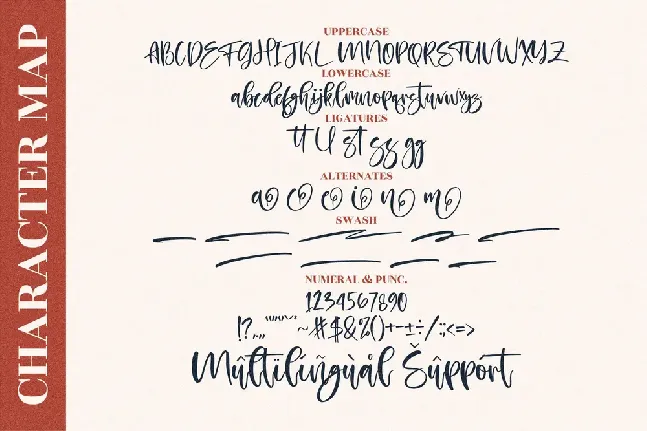 CHARACTER MAP
UPPERCASE
ABCDEFGHIJKLMNOPQRSTUVWXYZ
LOWERCASE
abcdefghijklmnopqrstuvwxyz
LIGATURES
tt ll st ss gg
ALTERNATES
a c e i n m
SWASH
NUMERAL & PUNC.
1234567890
~#$&%()+-±÷/:;<=>
Mûltïlíñgùål Šûppört